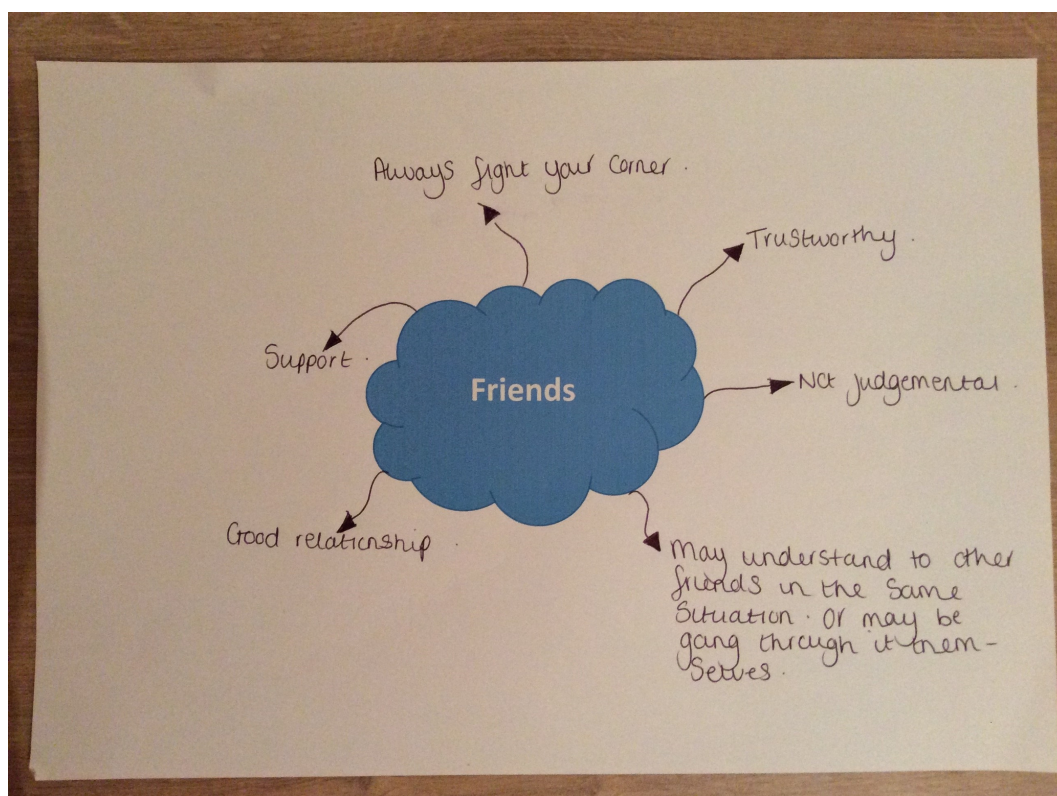 Always fight your corner.
Trustworthy.
Support.
Friends
Not judgemental.
Good relationship.
May understand to other
friends in the same
situation. Or may be
going through it them-
selves.